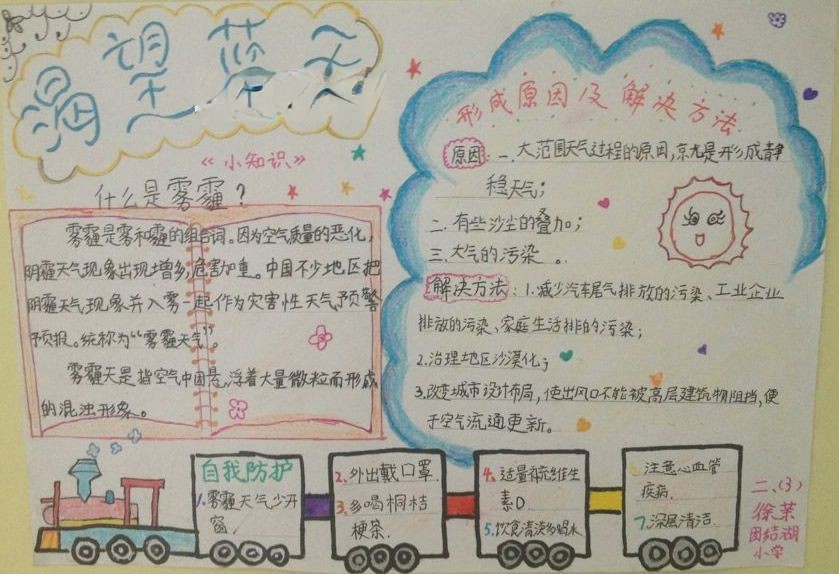 渴望蓝天
《小知识》
什么是雾霾？
雾霾是雾和霾的组合词。因为空气质量的恶化，
阴霾天气现象出现增多，危害加重。中国不少地区把
阴霾天气现象并入雾一起作为灾害性天气预警
预报。统称为“雾霾天气”。
雾霾天是指空气中因悬浮着大量微粒而形成
的混浊形象。
形成原因及解决方法
原因：一、大范围天气过程的原因，京尤是形成静
稳天气；
二、有些沙尘的叠加；
三、大气的污染。
解决方法：1.减少汽车尾气排放的污染、工业企业
排放的污染、家庭生活排的污染；
2.治理地区沙漠化；
3.改变城市设计布局，使出风口不能被高层建筑物阻挡，便
于空气流通更新。
自我防护
1.雾霾天气少开
窗.
2.外出戴口罩.
3.多喝桐桔
梗茶.
4.适量补充维生
素D.
5.饮食清淡多喝水
注意心血管
疾病.
7.深层清洁.
二、(3)
徐茉
团结湖
小学